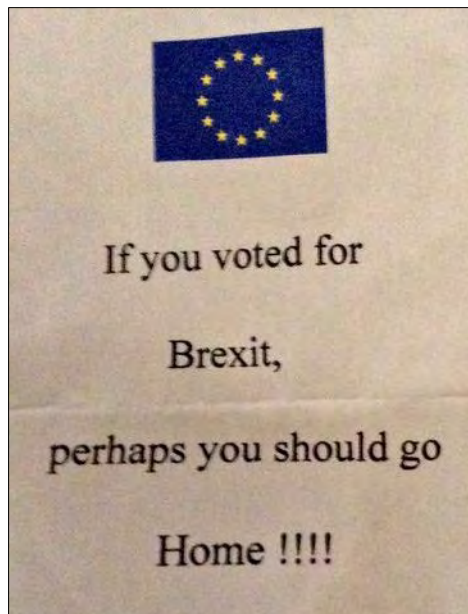 If you voted for
Brexit,
perhaps you should go
Home !!!!